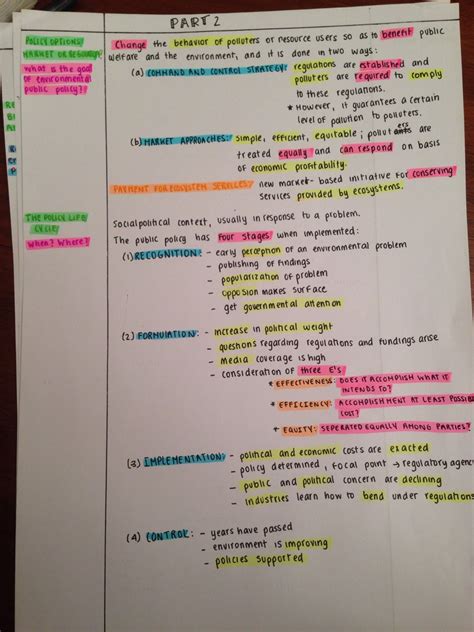 PART 2
POLICY OPTIONS:
MARKET OR RESOURCE
What is the goal
of environmental
public policy?
Change the behavior of polluters or resource users so as to benefit public
welfare and the environment, and it is done in two ways:
(a) COMMAND AND CONTROL STRATEGY: regulations are established and
polluters are required to comply
to these regulations.
* However, it guarantees a certain
level of pollution to polluters.
(b) MARKET APPROACHES: simple, efficient, equitable; polluters are
treated equally and can respond on basis
of economic profitability.
PAYMENT FOR ECOSYSTEM SERVICES: new market-based initiative for conserving
services provided by ecosystems.
THE POLICY LIFE
CYCLE:
When? Where?
Socialpolitical context, usually in response to a problem.
The public policy has four stages when implemented:
(1) RECOGNITION: - early perception of an environmental problem
- publishing of findings
- popularization of problem
- opposion makes surface
- get governmental attention
(2) FORMULATION: - increase in political weight
- questions regarding regulations and fundings arise
- media coverage is high
- consideration of three E's
* EFFECTIVENESS: DOES IT ACCOMPLISH WHAT IT
INTENDS TO?
* EFFICIENCY: ACCOMPLISHMENT AT LEAST POSSIBLE
COST?
* EQUITY: SEPERATED EQUALLY AMONG PARTIES?
(3) IMPLEMENTATION: - political and economic costs are exacted
- policy determined, focal point → regulatory agen
- public and political concern are declining
- industries learn how to bend under regulations
(4) CONTROL: - years have passed
- environment is improving
- policies supported